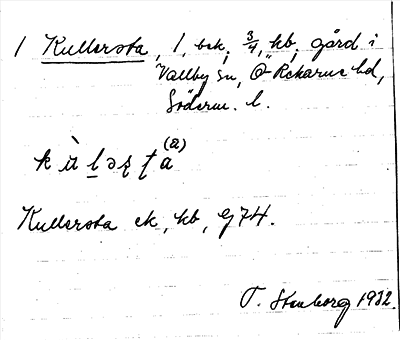 1 Kullersta, 1, bek, 3/4, kb, gård i
Vallby sn, Ö-Rekarne hd,
Söderm. l.
k ù l ə ʂ ʈ a (a)
Kullersta ek, kb, G74.
T. Stenborg 1932